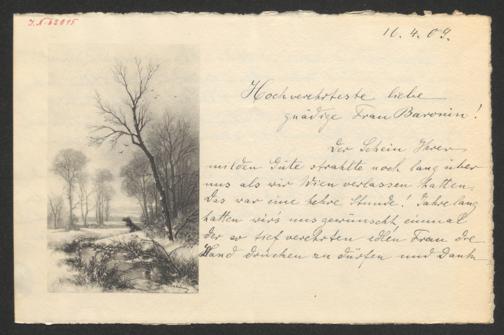 J.N. 62015
10.4.09.
Hochverehrteste liebe
gnädige Frau Baronin!
Der Schein Ihrer
milden Güte strahlte noch lang über
uns als wir Wien verlassen hatten,
das war eine hehre Stunde! Jahre lang
hatten wir's uns gewünscht, einmal
der so tief verehrten edlen Frau die
Hand drücken zu dürfen und Dank